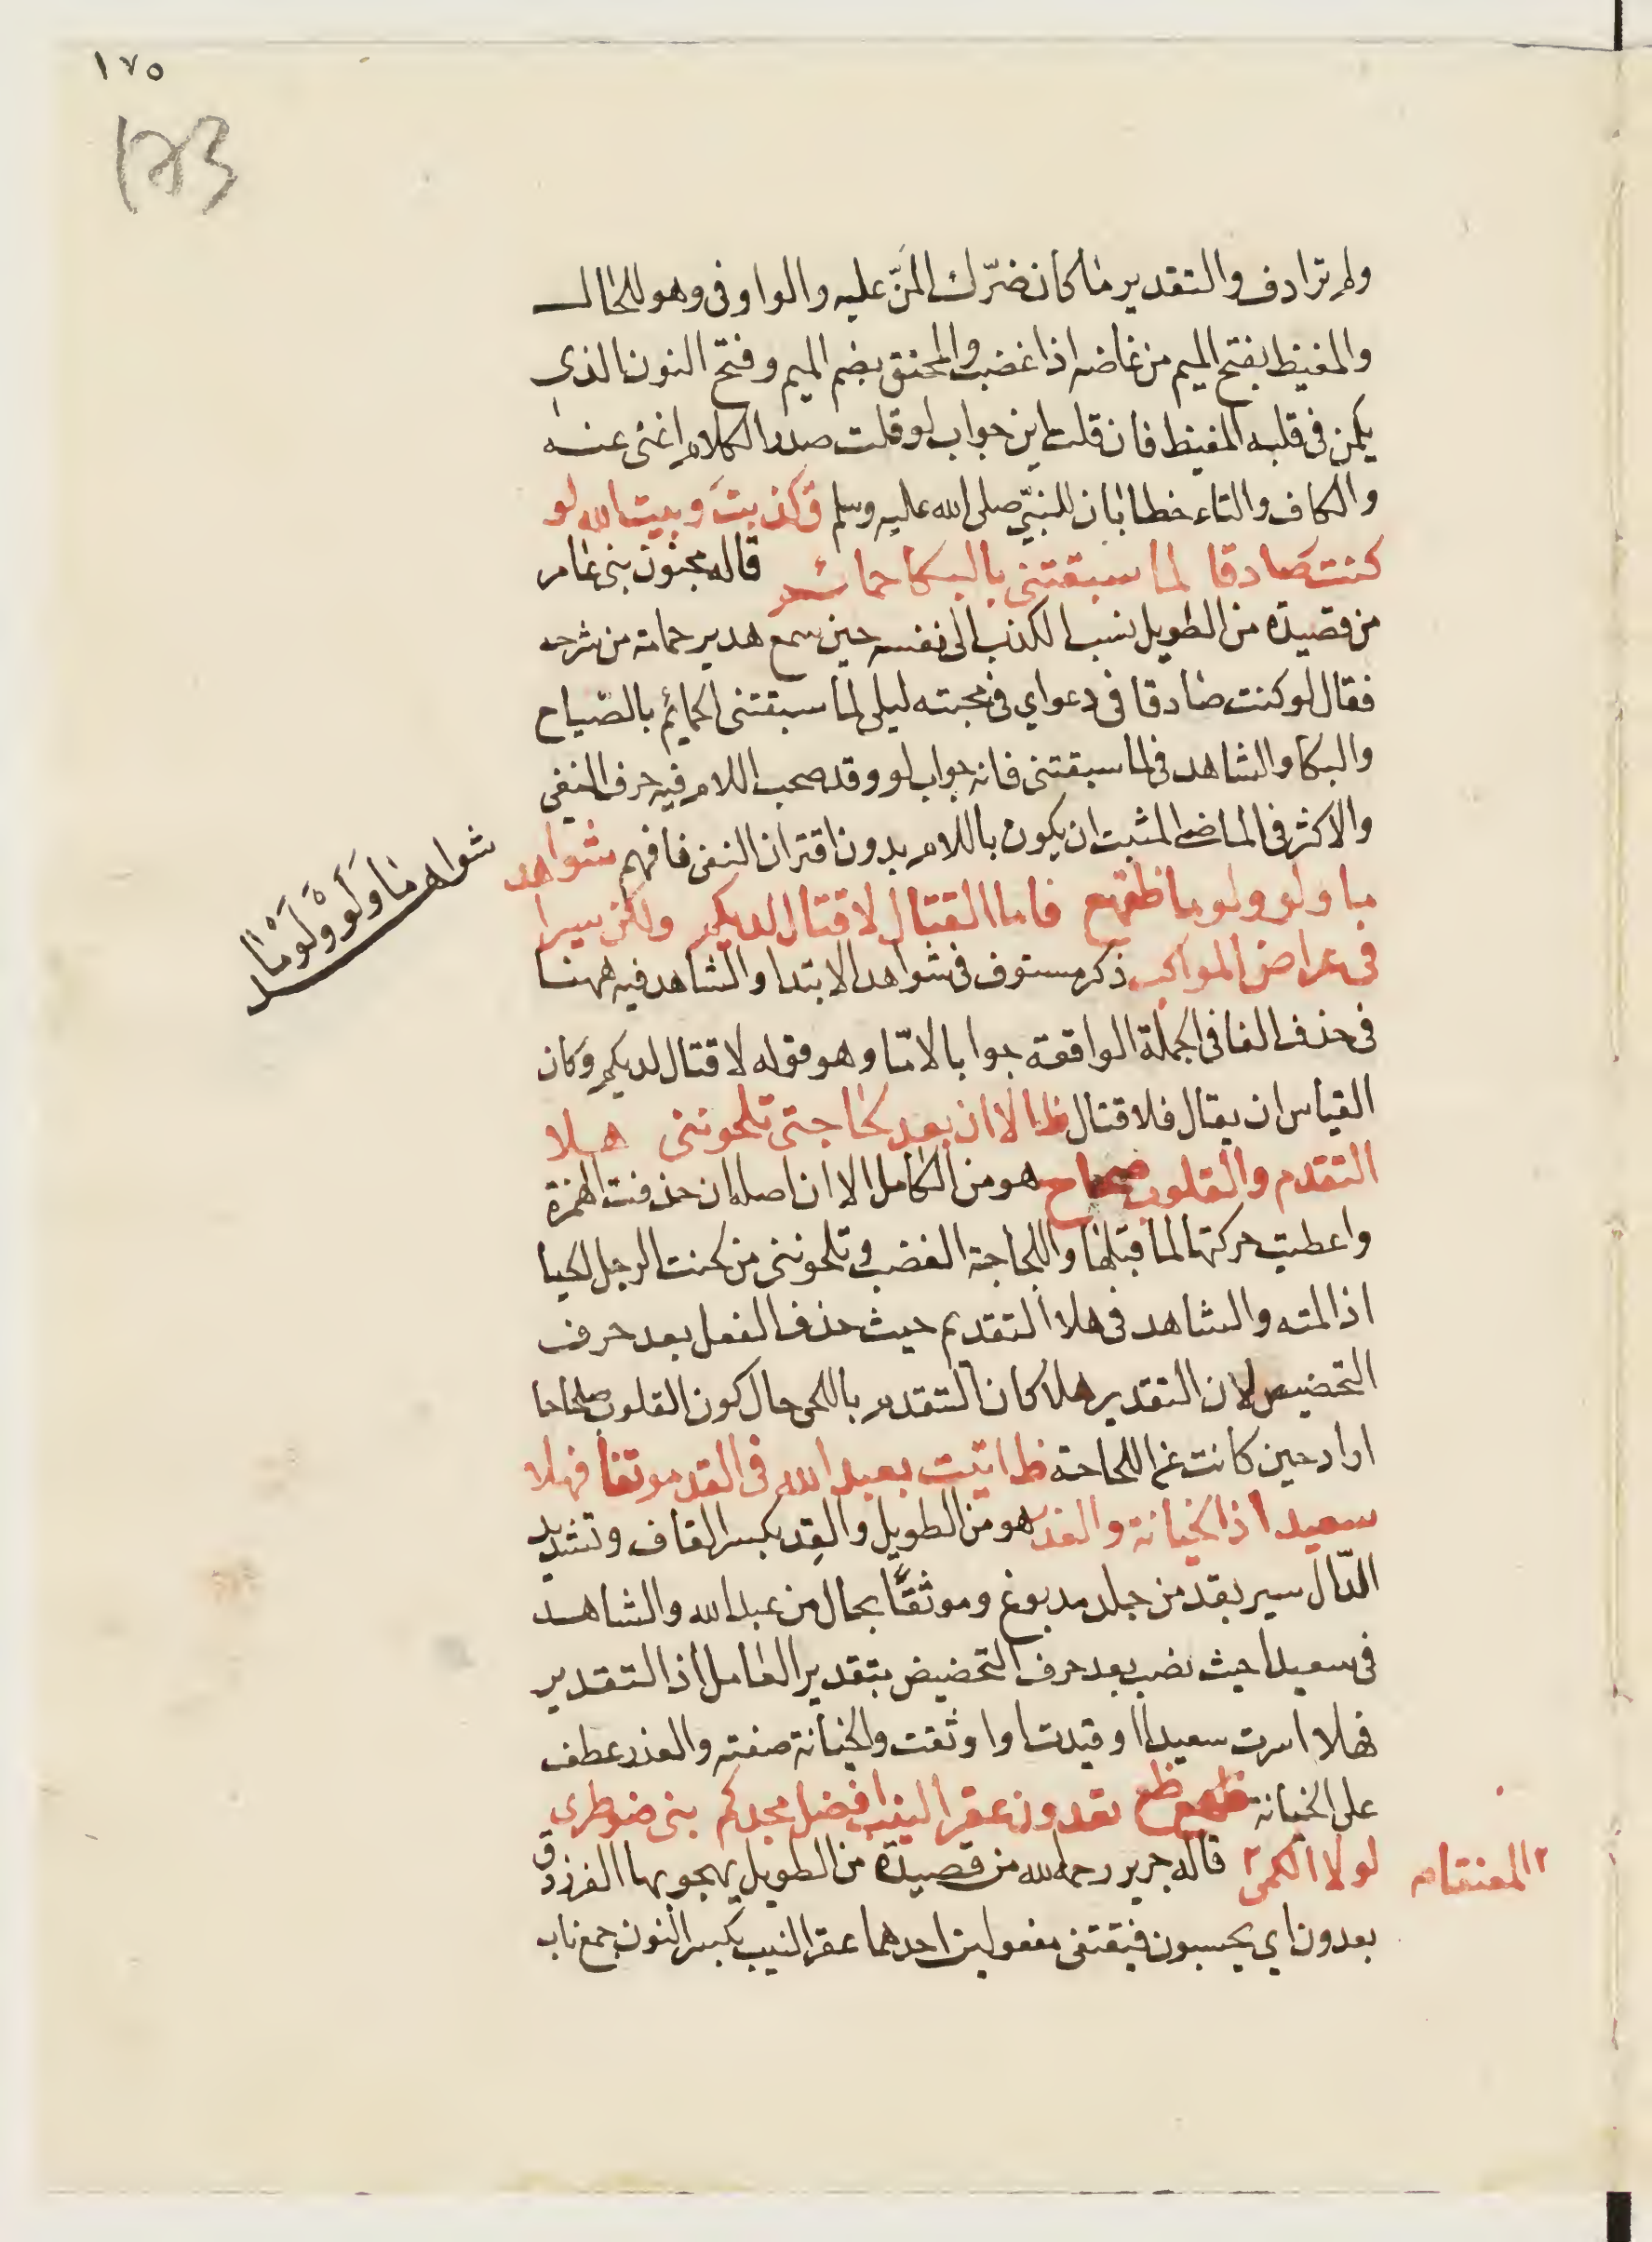 ١٧٥
١٧٣
ولم ترادف والتقدير ما كان ضرّك المنّ عليه والواو في وهو للحال
والمغيظ بفتح الميم من غاضه اذا غضب والمحنق بضم الميم وفتح النون الذى
يكمن في قلبه المغيظ فان قلت اين جواب لو قلت صدر الكلام اغنى عنه
والكاف والتاء خطابان للنبيّ صلى الله عليه وسلم ق كذبتَ وبيت الله لو
كنت صادقا لما سبقتنى بالبكا حمائم قاله مجنون بنى عامر
من قصيدة من الطويل نسب الكذب الى نفسه حين سمع هدير حمامة من شرحه
فقال لو كنت صادقا في دعواي في محبته ليلى لما سبقتنى الحمائم بالصّياح
والبكا والشاهد في لما سبقتنى فانه جواب لو وقد صحب اللام فيه حرف النفى
والاكثر في الماضي المثبت ان يكون باللام بدون اقتران النفى فافهم شواهد
شواهد ما ولَوْ ولَومَا
ما ولو ولوما ظقهع فاما القتال لا قتال لديكم ولكن سيرا
في عراض المواكب ذكر مستوف في شواهد الابتدا والشاهد فيه ههنا
في حذف الفا في الجملة الواقعة جوابا لامّا وهو قوله لا قتال لديكم وكان
القياس ان يقال فلا قتال ظ الا ان بعد لجاجتى تلحوننى هلا
التقدم والقلوب صحاح هو من الكامل الا ان اصله ان حذفت الهمزة
واعطيت حركتها لما قبلها واللجاجة الغضب وتلحوننى من لحنت الرجل لحيا
اذا لمته والشاهد في هلا التقديم حيث حذف الفعل بعد حرف
التحضيض لان التقدير هلا كان التقدم باللحى حال كون القلوب صحاحا
اراد حين كانت غم اللجاجة ظ اتيت بعبد الله في القد موثقا فهلا
سعيدا ذا الخيانة والغدر هو من الطويل والقِد بكسر القاف وتشديد
الدّال سير يقد من جلد مدبوغ وموثقًا بحال من عبد الله والشاهد
في سعيدا حيث نصب بعد حرف التحضيض بتقدير العامل اذ التقدير
فهلا اسرت سعيدا او قيدت او اوثقت والخيانة صفته والغدر عطف
على الخيانة ظقهع تعدون عقر النيب افضل مجدكم بنى ضوطرى
لولا الكمى ٢ قاله جرير رحمه الله من قصيدة من الطويل يهجو بها الفرزدق
٢ المقنعا
بعدون اي يحسبون فيقتضى مفعولين احدهما عقر النيب بكسر النون جمع ناب